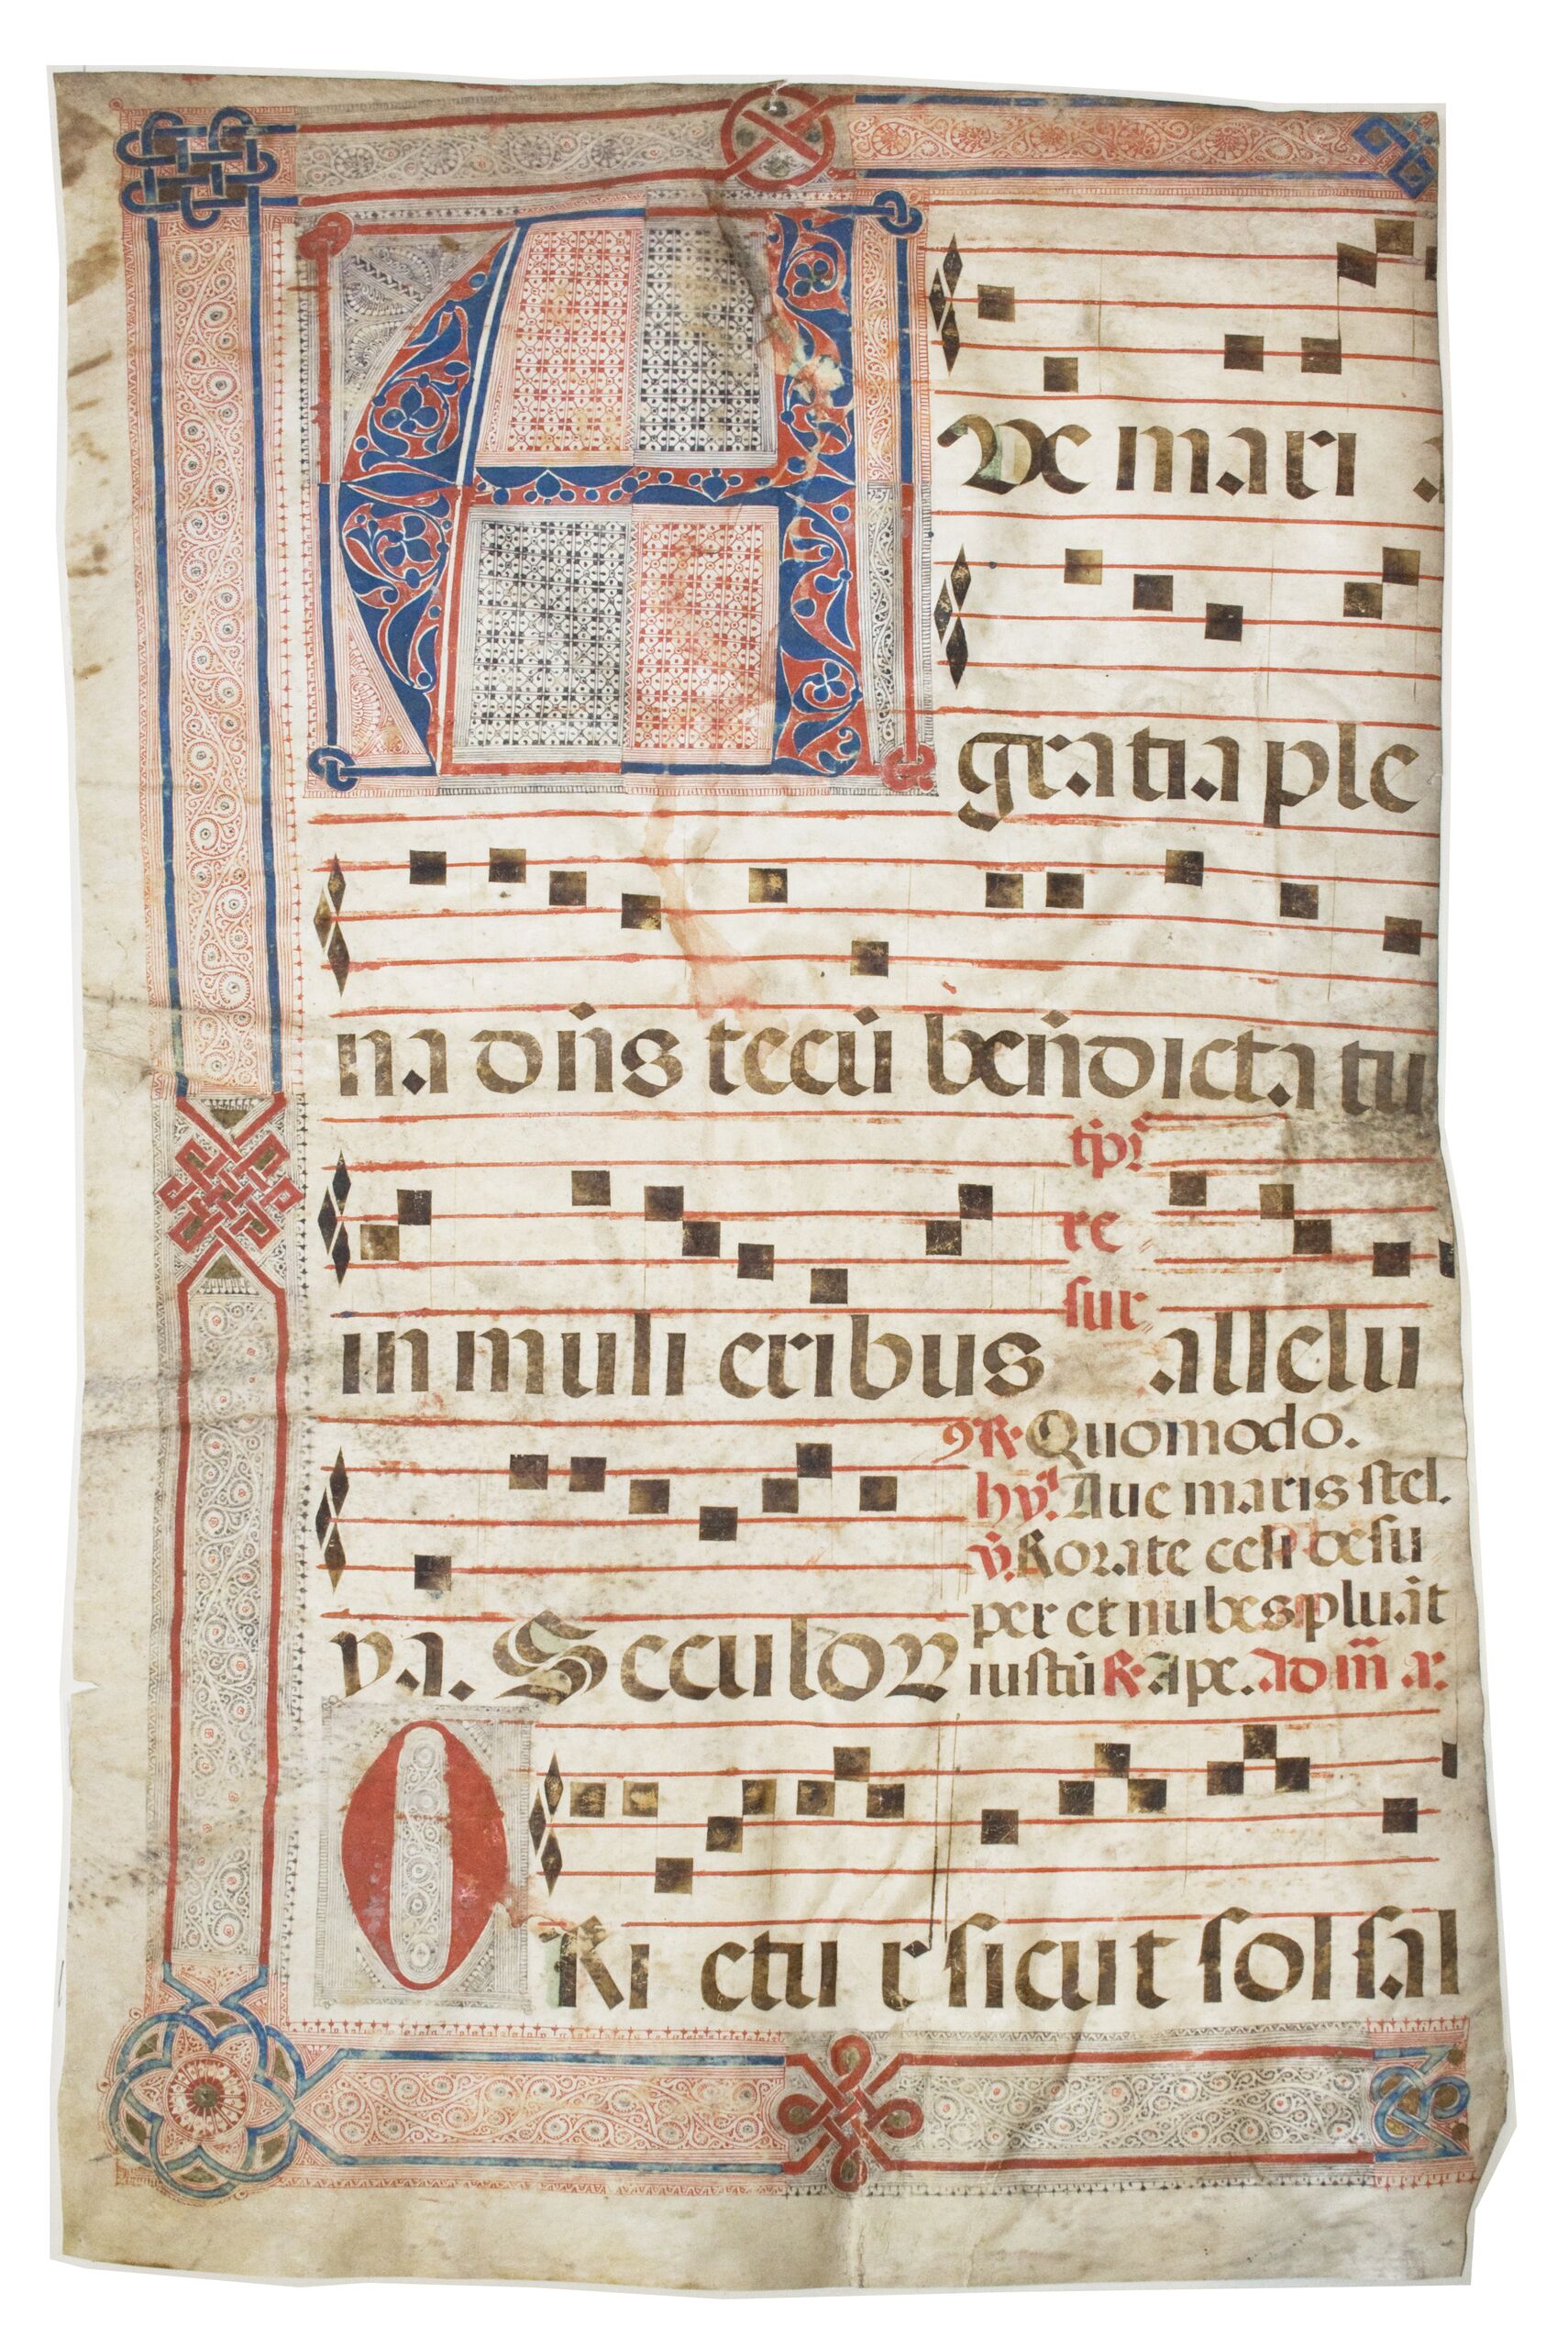 AVe mari a
gratia ple
na dn̄s tecū ben̄dicta tu
in muli eribus tp̄r re sur allelu
ya. Seculoꝝ
ꝯR. Quomodo.
hy̆. Aue maris stel.
v̆. Rorate celi desu
per et nubes pluāt
iustū R. Ape. ad m̄ a.
ORi etu r sicut sol sal